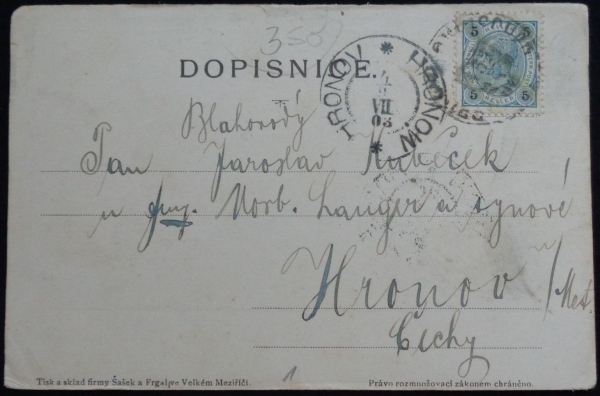 350
DOPISNICE.
HRONOV HRONOW
VII
03
5 5
HELLER
5 5
Blahorodý
Pan Jaroslav Kubeček
u Norb. Langer a synové
Hronov / Met.
Čechy
Tisk a sklad firmy Šašek a Frgal, ve Velkém Meziříčí.
1
Právo rozmnožovací zákonem chráněno.